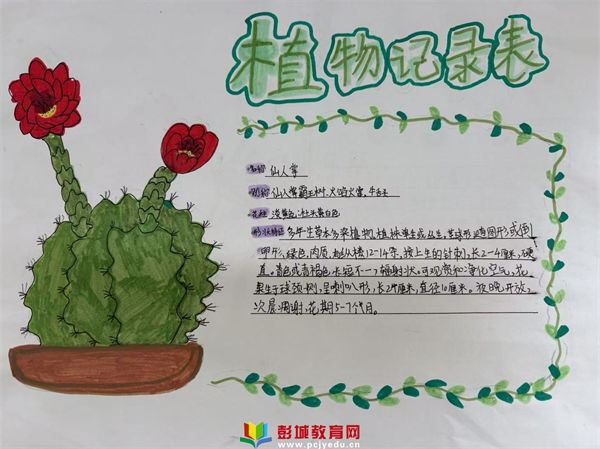 植物记录表
名称 仙人掌
别称 仙人掌霸王树、火焰火雪、牛舌
花色 淡黄色、红黄白色
形状特征 多年生草本多浆植物,植株单生或丛生,茎球形或椭圆形或倒
甲形、绿色,肉质,有纵棱12-14条,棱上生的针刺,长2-4厘米,硬
直。黄色或青褐色,长短不一,辐射状。可观赏和净化空气。花
呈喇叭形,长24厘米,直径10厘米。傍晚开放,
次晨凋谢,花期5-7个月。
彭城教育网
www.pcjyedu.cn